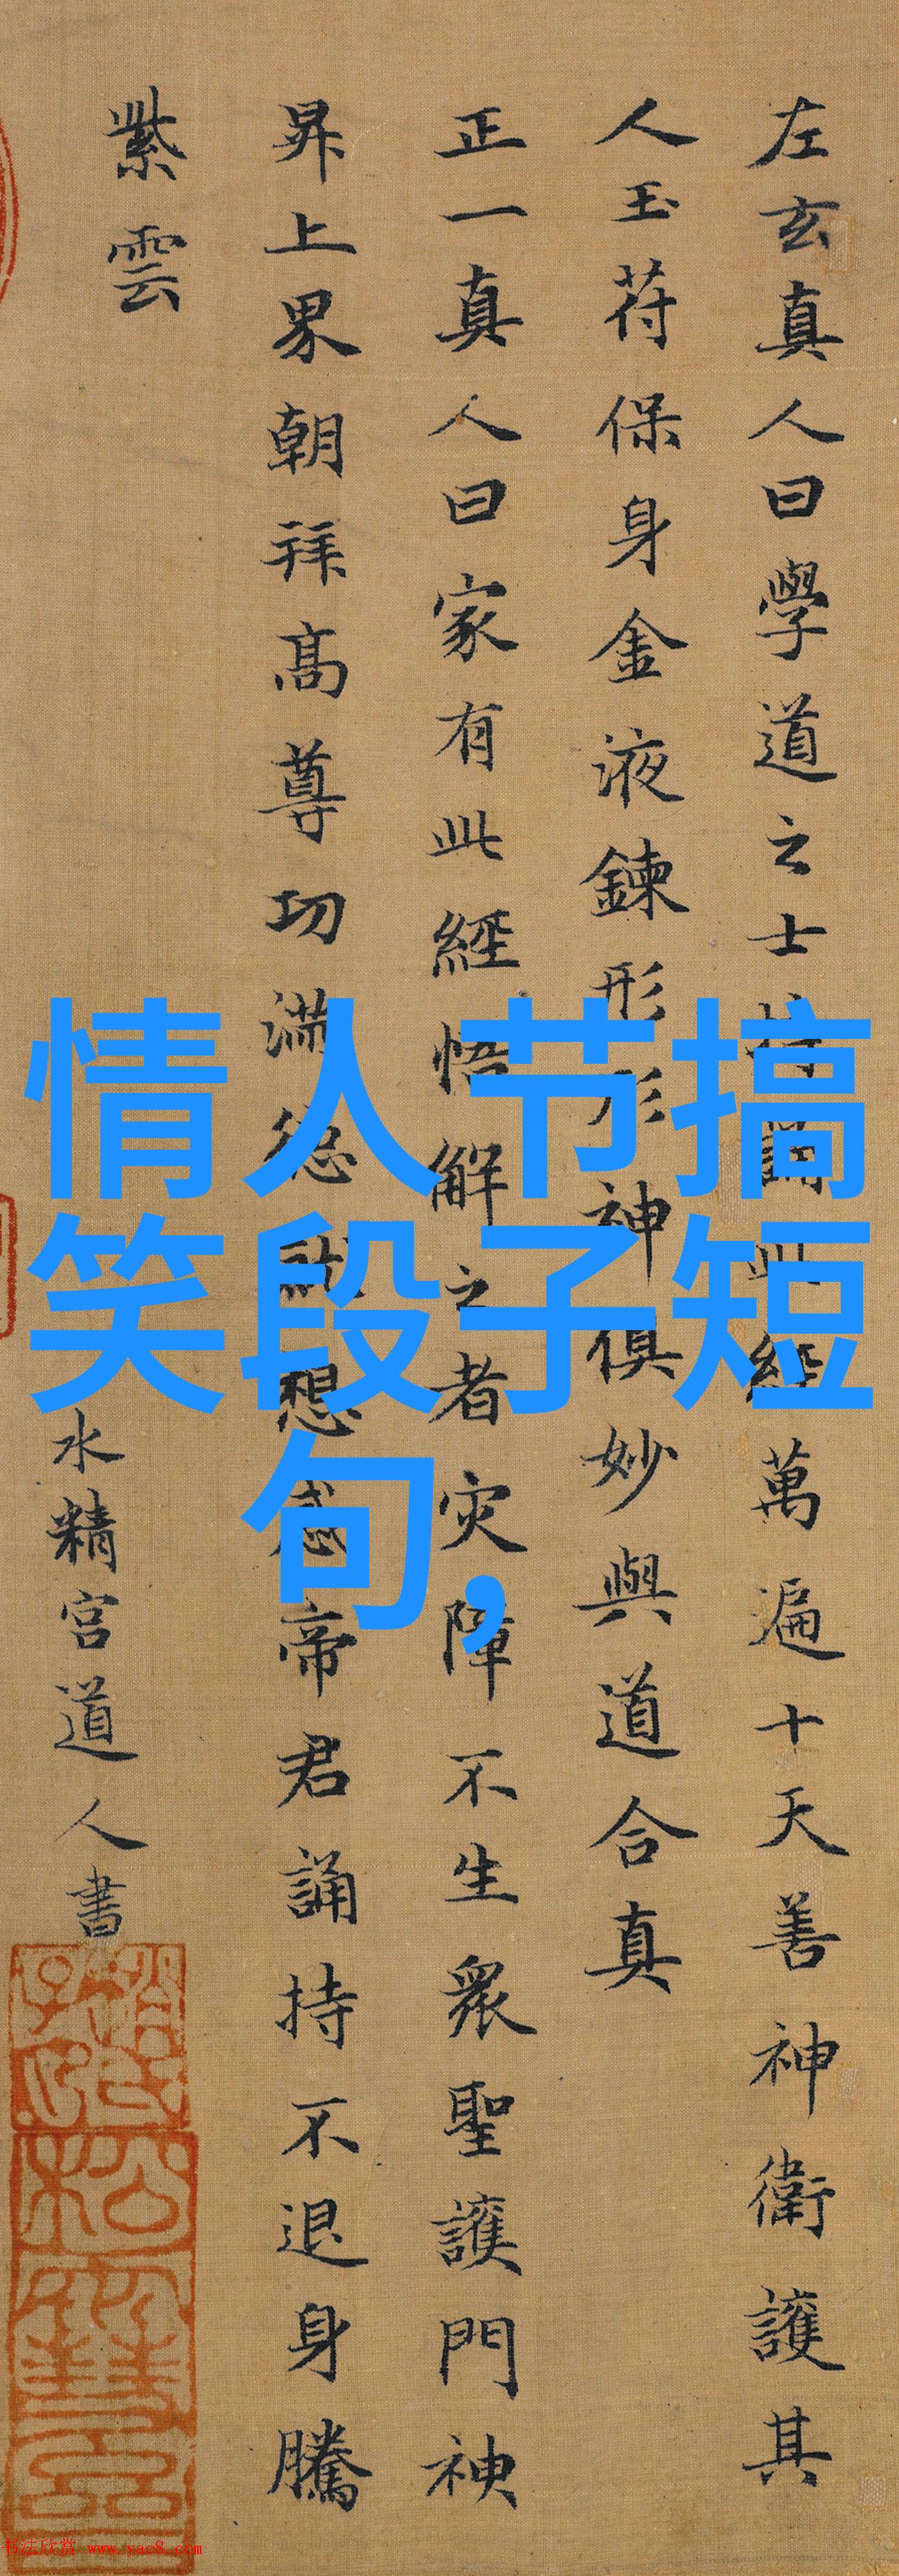 左玄真人曰學道之士持誦此經萬遍十天善神衛護其
人玉符保身金液鍊形形神俱妙與道合真
正一真人曰家有此經悟解之者灾障不生衆聖護門神
昇上界朝拜高尊功滿德就想感帝君誦持不退身騰
紫雲
水精宮道人書
情人节搞
笑段子短
句,
书法欣赏 www.yac8.com